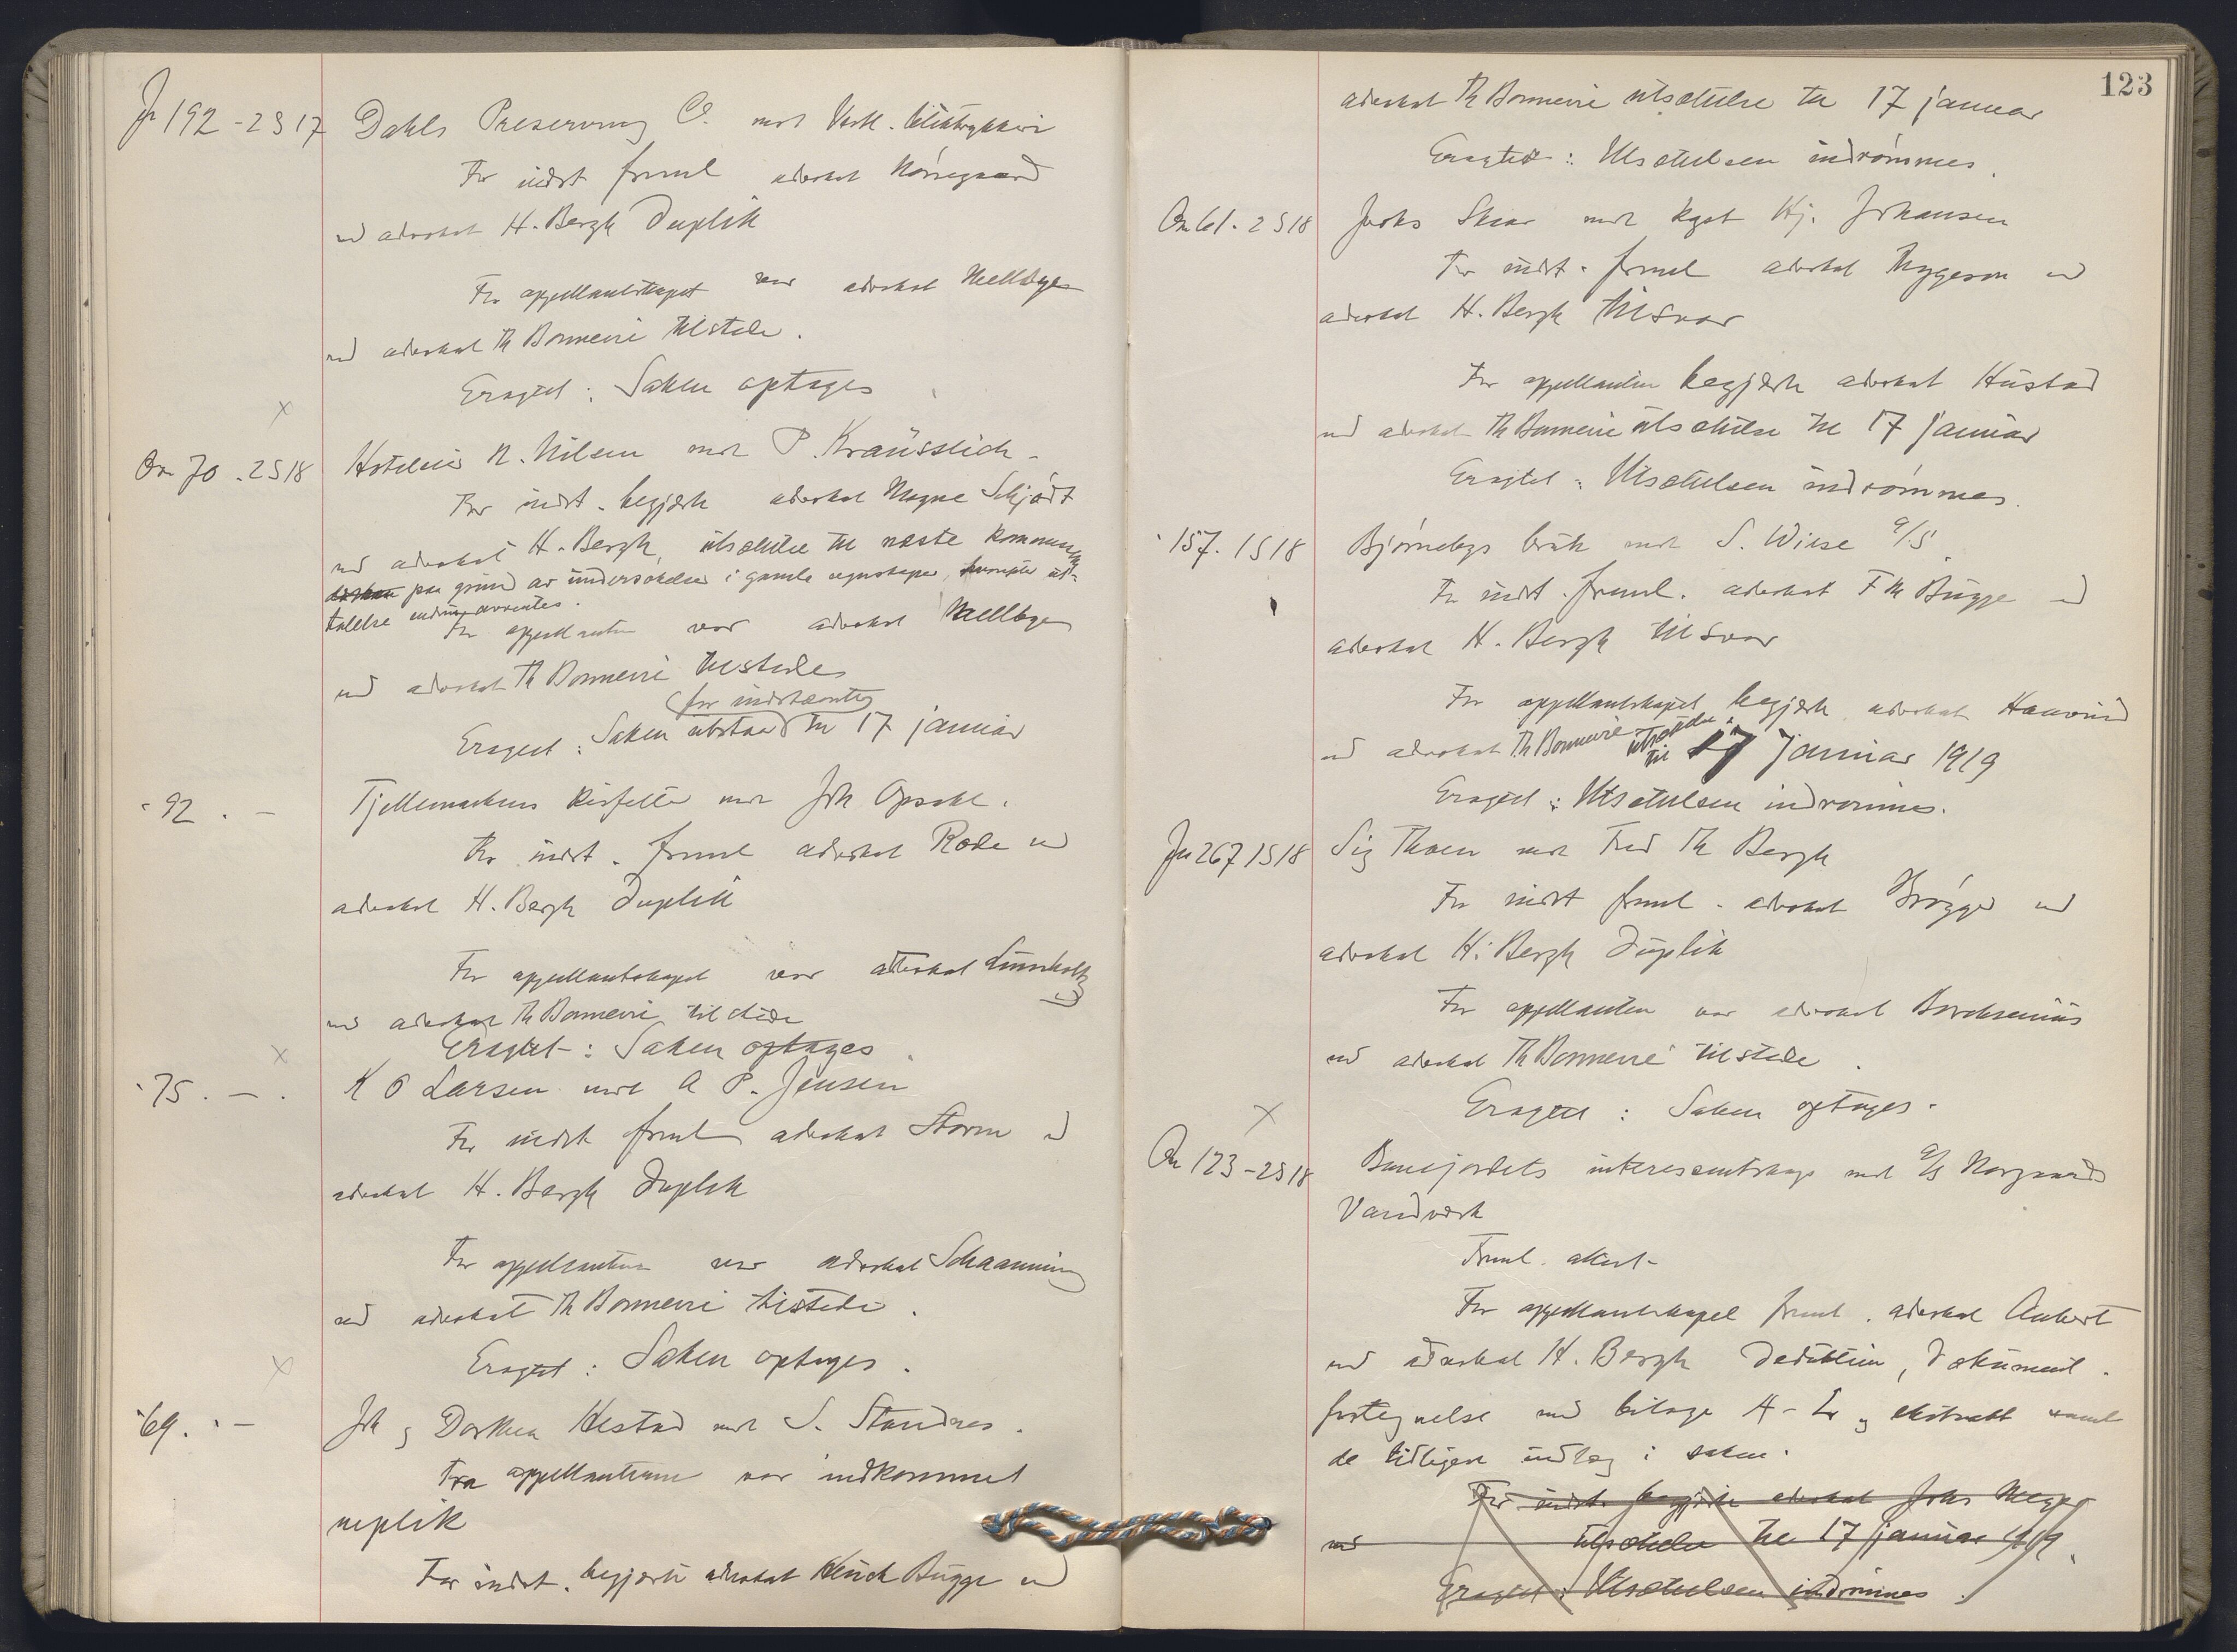 Ju 192 - 2 S 17 Dahls Preserving Co. mot Verdl. bliktrykkeri
For indst. freml. advokat Nørregaard
ved advokat H. Bergh Duplik
For appellantskapet var advokat Mellbye
ved advokat Th Bonnevie tilstede.
Eragtet: Saken optages
x
On 70 . 2 S 18 Hoteleier N. Nilsen mot P. Kräusslich.
For indst. begjærte advokat Magne Schjødt
ved advokat H. Bergh, utsættelse til næste
paa grund av undersøkelser i gamle regnskaper, ut-
talelse endnu avventes.
For appellanten var advokat Mellbye
ved advokat Th Bonnevie tilstede
Eragtet: Saken utstaar for indstevnte til 17 januar
" 92 . - Tjellemarkens Kisfelter mot Joh Opsahl.
For indst. freml advokat Rode ved
advokat H. Bergh Duplik
For appellantskapet var advokat Lumholtz
ved advokat Th Bonnevie tilstede
Eragtet: Saken optages.
x
" 75 . - . K O Larsen mot A P. Jensen
For indst freml advokat Storm ved
advokat H. Bergh Duplik
For appellanten var advokat Schaanning
ved advokat Th Bonnevie tilstede.
Eragtet: Saken optages.
x
" 69 . - Joh og Dorthea Hestad mot S. Standnes.
Fra appellanterne var indkommet
replik
For indst. begjærte advokat Bugge ved
123
advokat Th Bonnevie utsættelse til 17 januar
Eragtet: Utsættelsen indrømmes.
On 61 . 2 S 18 Johs Skar mot kgst Kj. Johansen
For indst. freml advokat Trygeson ved
advokat H. Bergh tilsvar
For appellanten begjærte advokat Hustad
ved advokat Th Bonnevie utsættelse til 17 januar
Eragtet: Utsættelsen indrømmes.
" 157 . 1 S 18 Bjørnebys bruk mot S. Wiese A/S.
For indst. freml. advokat F M Bugge ved
advokat H. Bergh tilsvar
For appellantskapet begjærte advokat Haavind
ved advokat Th Bonnevie utsættelse til 17 januar 1919
Eragtet: Utsættelsen indrømmes.
Ju 267 1 S 18 Sig Thoen mot Fred Th Bergh
For indst freml. advokat Brøgger ved
advokat H. Bergh Duplik
For appellanten var advokat Borchsenius
ved advokat Th Bonnevie tilstede.
Eragtet: Saken optages.
x
On 123 - 2 S 18 interessentskap mot A/S Norgaards
Vandverk
Freml. attest.
For appellantskapet freml. advokat Aubert
ved advokat H. Bergh Deduktion, Dokument.
fortegnelse med bilage A - og ekstrakt samt
de tidligere indlæg i saken.
For indst. begjærte advokat Johs
ved utsættelse til 17 januar 1919.
Eragtet: Utsættelsen indrømmes.